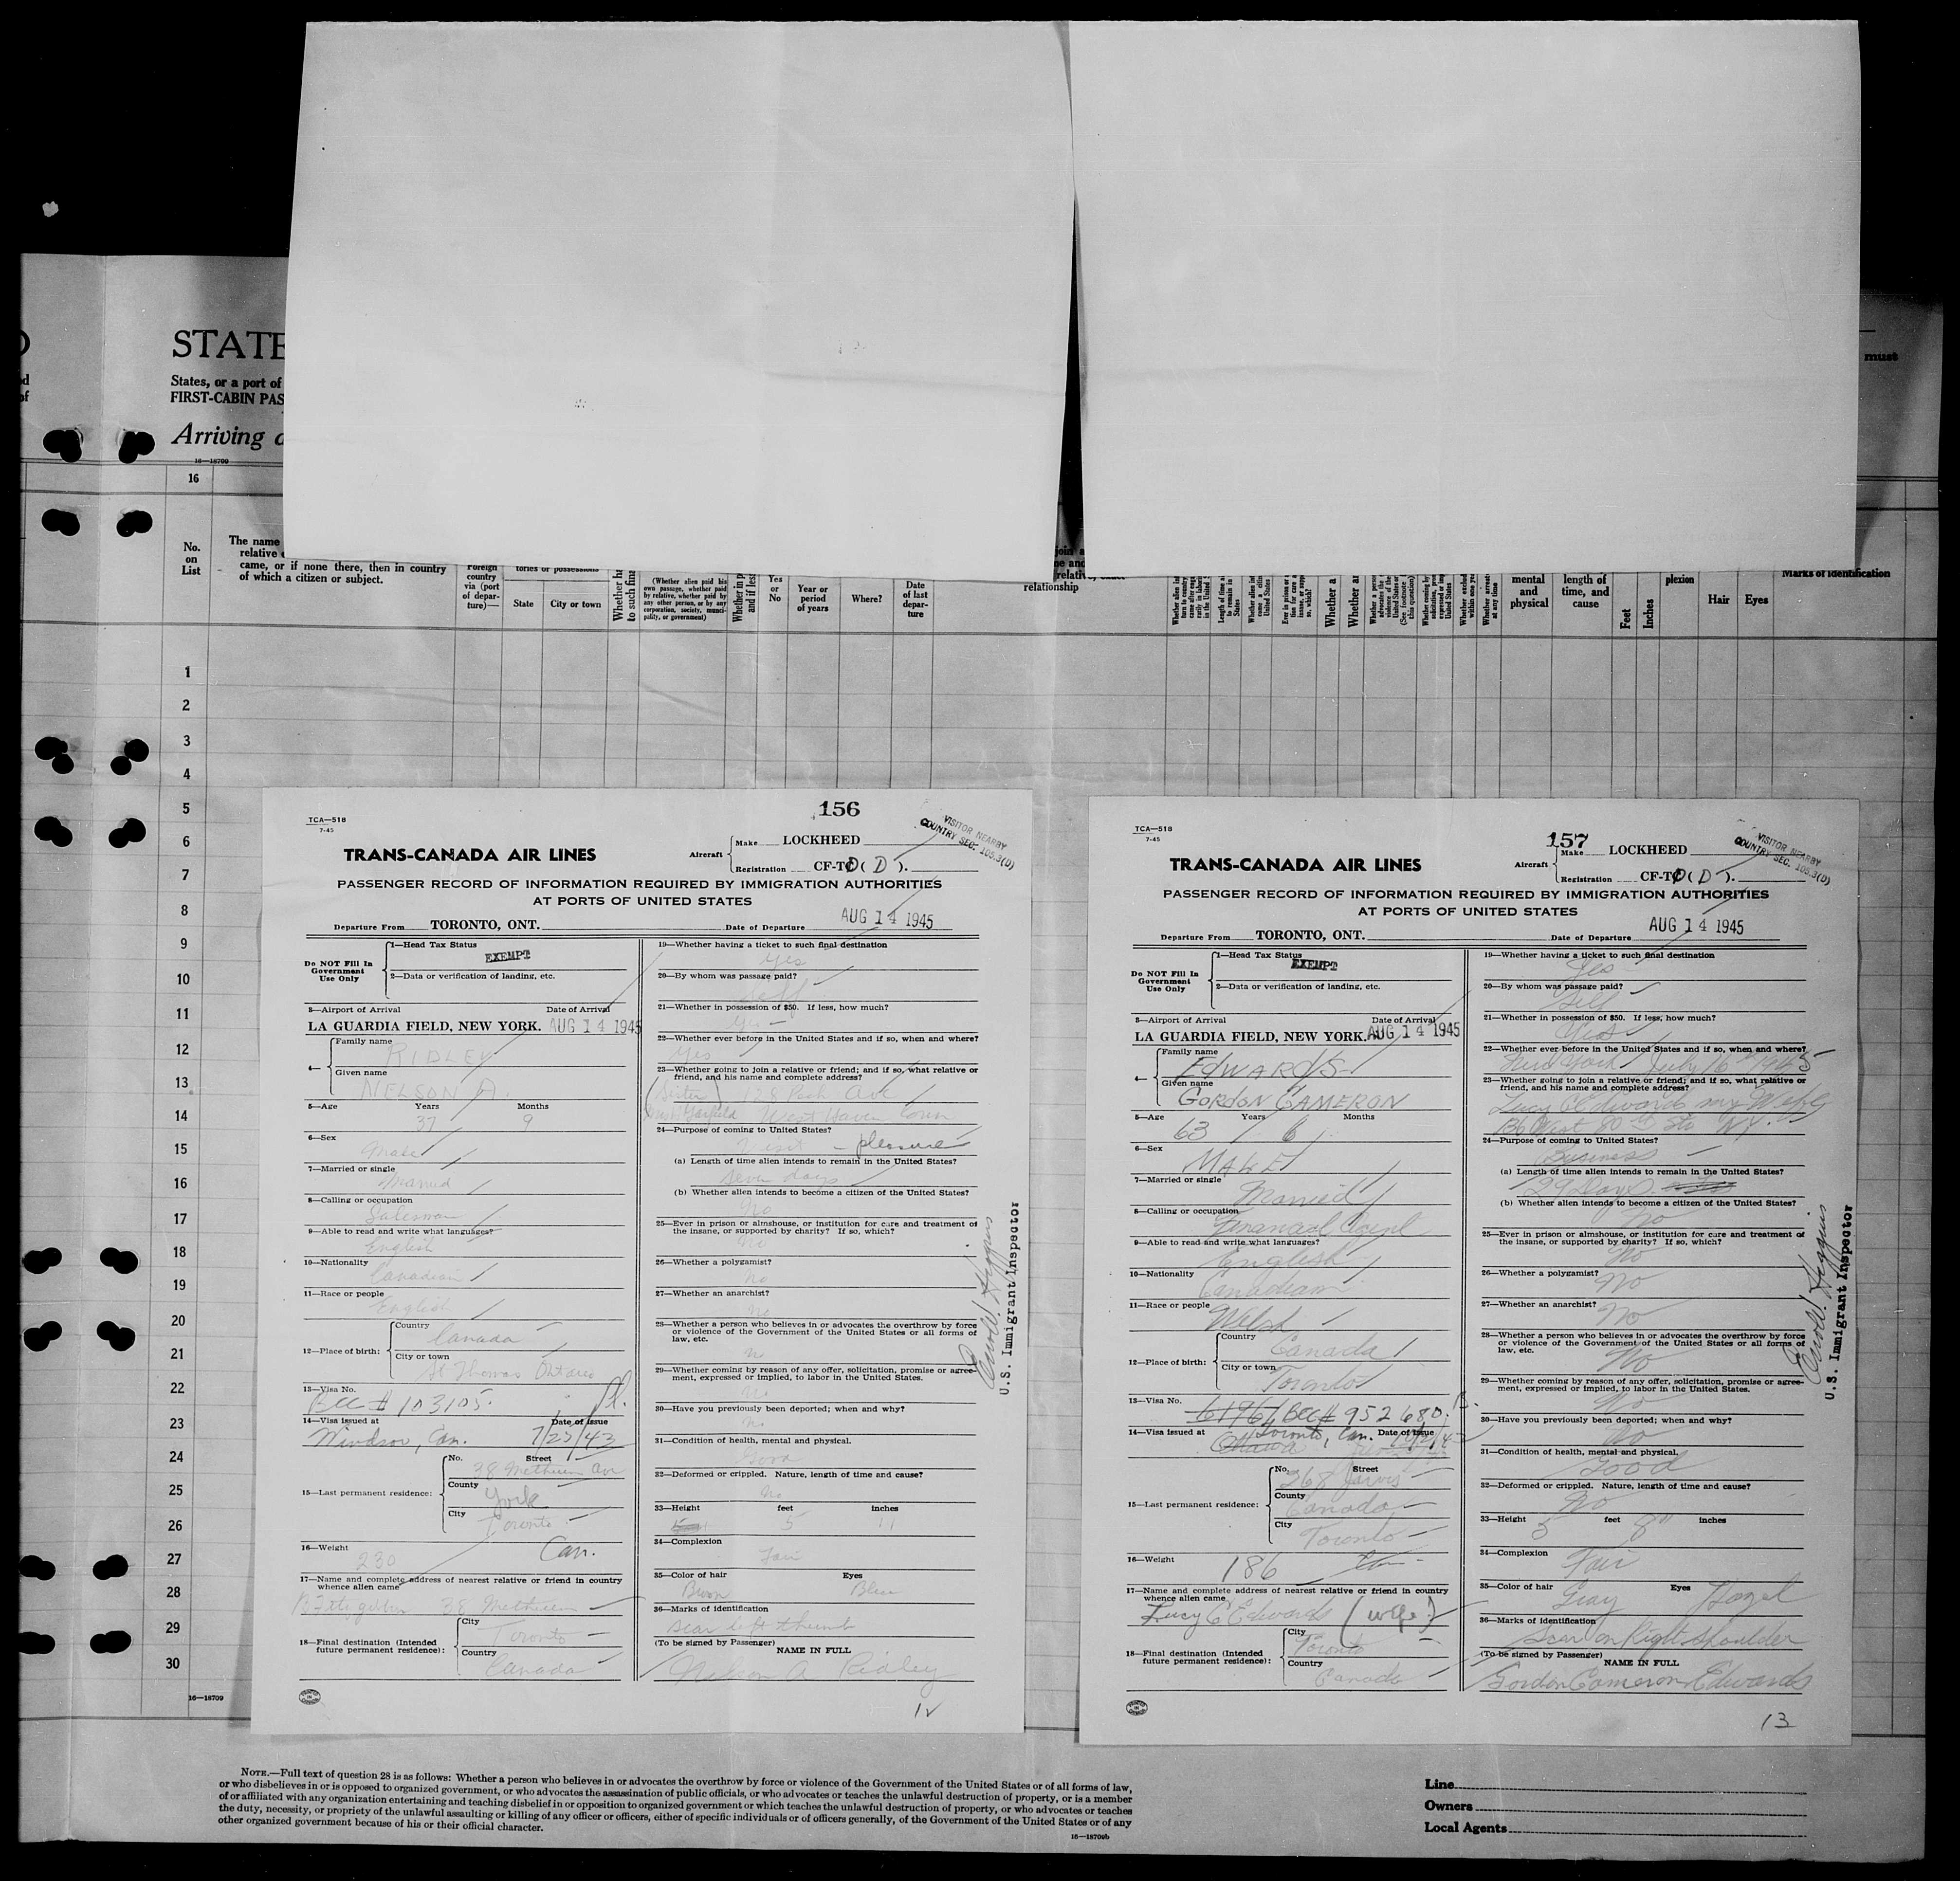 STATE
States, or a port of
FIRST-CABIN PAS
Arriving a
must
16—18709
16
No.
on
List
The name
relative
came, or if none there, then in country
of which a citizen or subject.
Foreign
country
via (port
of depar-
ture)—
tories or possessions
State
City or town
(Whether alien paid his
own passage, whether paid
by relative, whether paid by
any other person, or by any
corporation, society, munici-
pality, or government)
Yes
or
No
Year or
period
of years
Where?
Date
of last
depar-
ture
relationship
mental
and
physical
length of
time, and
cause
Feet
Inches
plexion
Hair
Eyes
Marks of identification
1
2
3
4
5
6
7
8
9
10
11
12
13
14
15
16
17
18
19
20
21
22
23
24
25
26
27
28
29
30
16—18709
156
TCA—518
7-45
TRANS-CANADA AIR LINES
Aircraft
Make LOCKHEED
Registration CF-TC (D).
VISITOR NEARBY
COUNTRY SEC. 105.3(D)
PASSENGER RECORD OF INFORMATION REQUIRED BY IMMIGRATION AUTHORITIES
AT PORTS OF UNITED STATES
AUG 14 1945
Departure From TORONTO, ONT. Date of Departure
Do NOT Fill In
Government
Use Only
1—Head Tax Status
EXEMPT
2—Data or verification of landing, etc.
3—Airport of Arrival Date of Arrival
LA GUARDIA FIELD, NEW YORK. AUG 14 1945
4—
Family name
RIDLEY
Given name
NELSON A.
5—Age Years Months
37 9
6—Sex
Male
7—Married or single
Married
8—Calling or occupation
Salesman
9—Able to read and write what languages?
English
10—Nationality
Canadian
11—Race or people
English
12—Place of birth:
Country
Canada
City or town
St Thomas Ontario
13—Visa No.
BCC # 103105.
14—Visa issued at Date of Issue
Windsor, Can. 7/23/43
15—Last permanent residence:
No. Street
38 Methuen Ave
County
York
City
Toronto
16—Weight
230 Can.
17—Name and complete address of nearest relative or friend in country
whence alien came
38 Methuen
18—Final destination (Intended
future permanent residence):
City
Toronto
Country
Canada
19—Whether having a ticket to such final destination
Yes
20—By whom was passage paid?
Self
21—Whether in possession of $50. If less, how much?
Yes
22—Whether ever before in the United States and if so, when and where?
Yes
23—Whether going to join a relative or friend; and if so, what relative or
friend, and his name and complete address?
(Sister) 128 Park Ave
Garfield West Haven Conn
24—Purpose of coming to United States?
Visit - pleasure
(a) Length of time alien intends to remain in the United States?
Seven days
(b) Whether alien intends to become a citizen of the United States?
No
25—Ever in prison or almshouse, or institution for care and treatment of
the insane, or supported by charity? If so, which?
No
26—Whether a polygamist?
No
27—Whether an anarchist?
No
28—Whether a person who believes in or advocates the overthrow by force
or violence of the Government of the United States or all forms of
law, etc.
No
29—Whether coming by reason of any offer, solicitation, promise or agree-
ment, expressed or implied, to labor in the United States.
No
30—Have you previously been deported; when and why?
No
31—Condition of health, mental and physical.
Good
32—Deformed or crippled. Nature, length of time and cause?
No
33—Height feet inches
5 11
34—Complexion
Fair
35—Color of hair Eyes
Brown Blue
36—Marks of identification
Scar left thumb
(To be signed by Passenger) NAME IN FULL
Nelson A Ridley
12
U.S. Immigrant Inspector
157
TCA—518
7-45
TRANS-CANADA AIR LINES
Aircraft
Make LOCKHEED
Registration CF-TC (D).
VISITOR NEARBY
COUNTRY SEC. 105.3(D)
PASSENGER RECORD OF INFORMATION REQUIRED BY IMMIGRATION AUTHORITIES
AT PORTS OF UNITED STATES
AUG 14 1945
Departure From TORONTO, ONT. Date of Departure
Do NOT Fill In
Government
Use Only
1—Head Tax Status
EXEMPT
2—Data or verification of landing, etc.
3—Airport of Arrival Date of Arrival
LA GUARDIA FIELD, NEW YORK. AUG 14 1945
4—
Family name
EDWARDS
Given name
GORDON CAMERON
5—Age Years Months
63 6
6—Sex
MALE
7—Married or single
Married
8—Calling or occupation
Financial Agent
9—Able to read and write what languages?
English
10—Nationality
Canadian
11—Race or people
Welsh
12—Place of birth:
Country
Canada
City or town
Toronto
13—Visa No.
6196 BCC# 952680
14—Visa issued at Date of Issue
Ottawa Toronto, Can.
15—Last permanent residence:
No. Street
268 Jarvis
County
Canada
City
Toronto
16—Weight
186
17—Name and complete address of nearest relative or friend in country
whence alien came
Lucy C Edwards (wife)
18—Final destination (Intended
future permanent residence):
City
Toronto
Country
Canada
19—Whether having a ticket to such final destination
Yes
20—By whom was passage paid?
Self
21—Whether in possession of $50. If less, how much?
Yes
22—Whether ever before in the United States and if so, when and where?
New York July 16 1945
23—Whether going to join a relative or friend; and if so, what relative or
friend, and his name and complete address?
Lucy C Edwards my Wife
136 West 80th St N.Y.
24—Purpose of coming to United States?
Business
(a) Length of time alien intends to remain in the United States?
29 Days
(b) Whether alien intends to become a citizen of the United States?
No
25—Ever in prison or almshouse, or institution for care and treatment of
the insane, or supported by charity? If so, which?
No
26—Whether a polygamist?
No
27—Whether an anarchist?
No
28—Whether a person who believes in or advocates the overthrow by force
or violence of the Government of the United States or all forms of
law, etc.
No
29—Whether coming by reason of any offer, solicitation, promise or agree-
ment, expressed or implied, to labor in the United States.
No
30—Have you previously been deported; when and why?
No
31—Condition of health, mental and physical.
Good
32—Deformed or crippled. Nature, length of time and cause?
No
33—Height feet inches
5 8"
34—Complexion
Fair
35—Color of hair Eyes
Gray Hazel
36—Marks of identification
Scar on Right Shoulder
(To be signed by Passenger) NAME IN FULL
Gordon Cameron Edwards
13
U.S. Immigrant Inspector
NOTE.—Full text of question 28 is as follows: Whether a person who believes in or advocates the overthrow by force or violence of the Government of the United States or of all forms of law,
or who disbelieves in or is opposed to organized government, or who advocates the assassination of public officials, or who advocates or teaches the unlawful destruction of property, or is a member
of or affiliated with any organization entertaining and teaching disbelief in or opposition to organized government or which teaches the unlawful destruction of property, or who advocates or teaches
the duty, necessity, or propriety of the unlawful assaulting or killing of any officer or officers, either of specific individuals or of officers generally, of the Government of the United States or of any
other organized government because of his or their official character.
16—18709b
Line
Owners
Local Agents